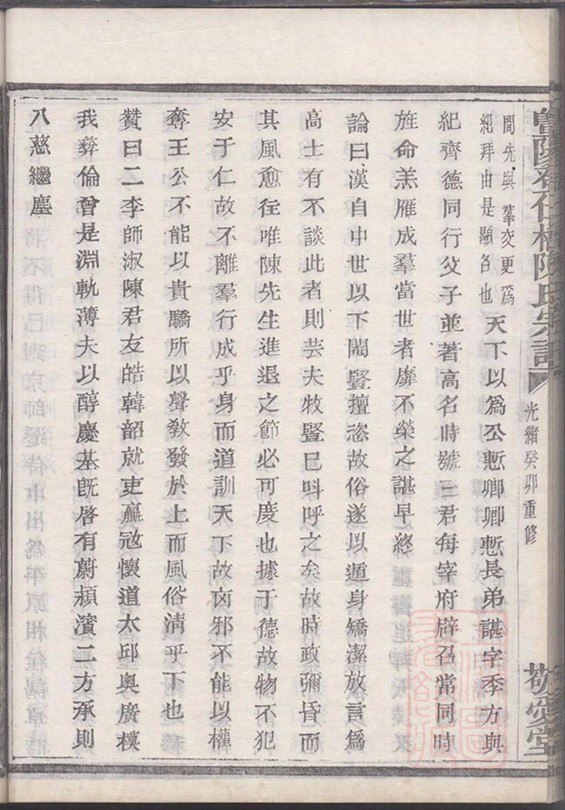 暨陽孝仁橋陳氏宗譜
光緒癸卯重修
敬愛堂
間先與羣交更爲
紀拜由是顯名也
天下以爲公慙卿卿慙長弟諶字季方與
紀齊德同行父子並著高名時號三君每宰府辟召常同時
旌命羔雁成羣當世者靡不榮之諶早終
論曰漢自中世以下閹豎擅恣故俗遂以遁身矯潔放言爲
高士有不談此者則芸夫牧豎巳呌呼之矣故時政彌昏而
其風愈往唯陳先生進退之節必可度也據于德故物不犯
安于仁故不離羣行成乎身而道訓天下故凶邪不能以權
奪王公不能以貴驕所以聲敎發於上而風俗淸乎下也
贊曰二李師淑陳君友皓韓韶就吏贏寇懷道太邱奧廣模
我彝倫曾是淵軌薄夫以醇慶基旣啓有蔚潁濱二方承則
八慈繼塵